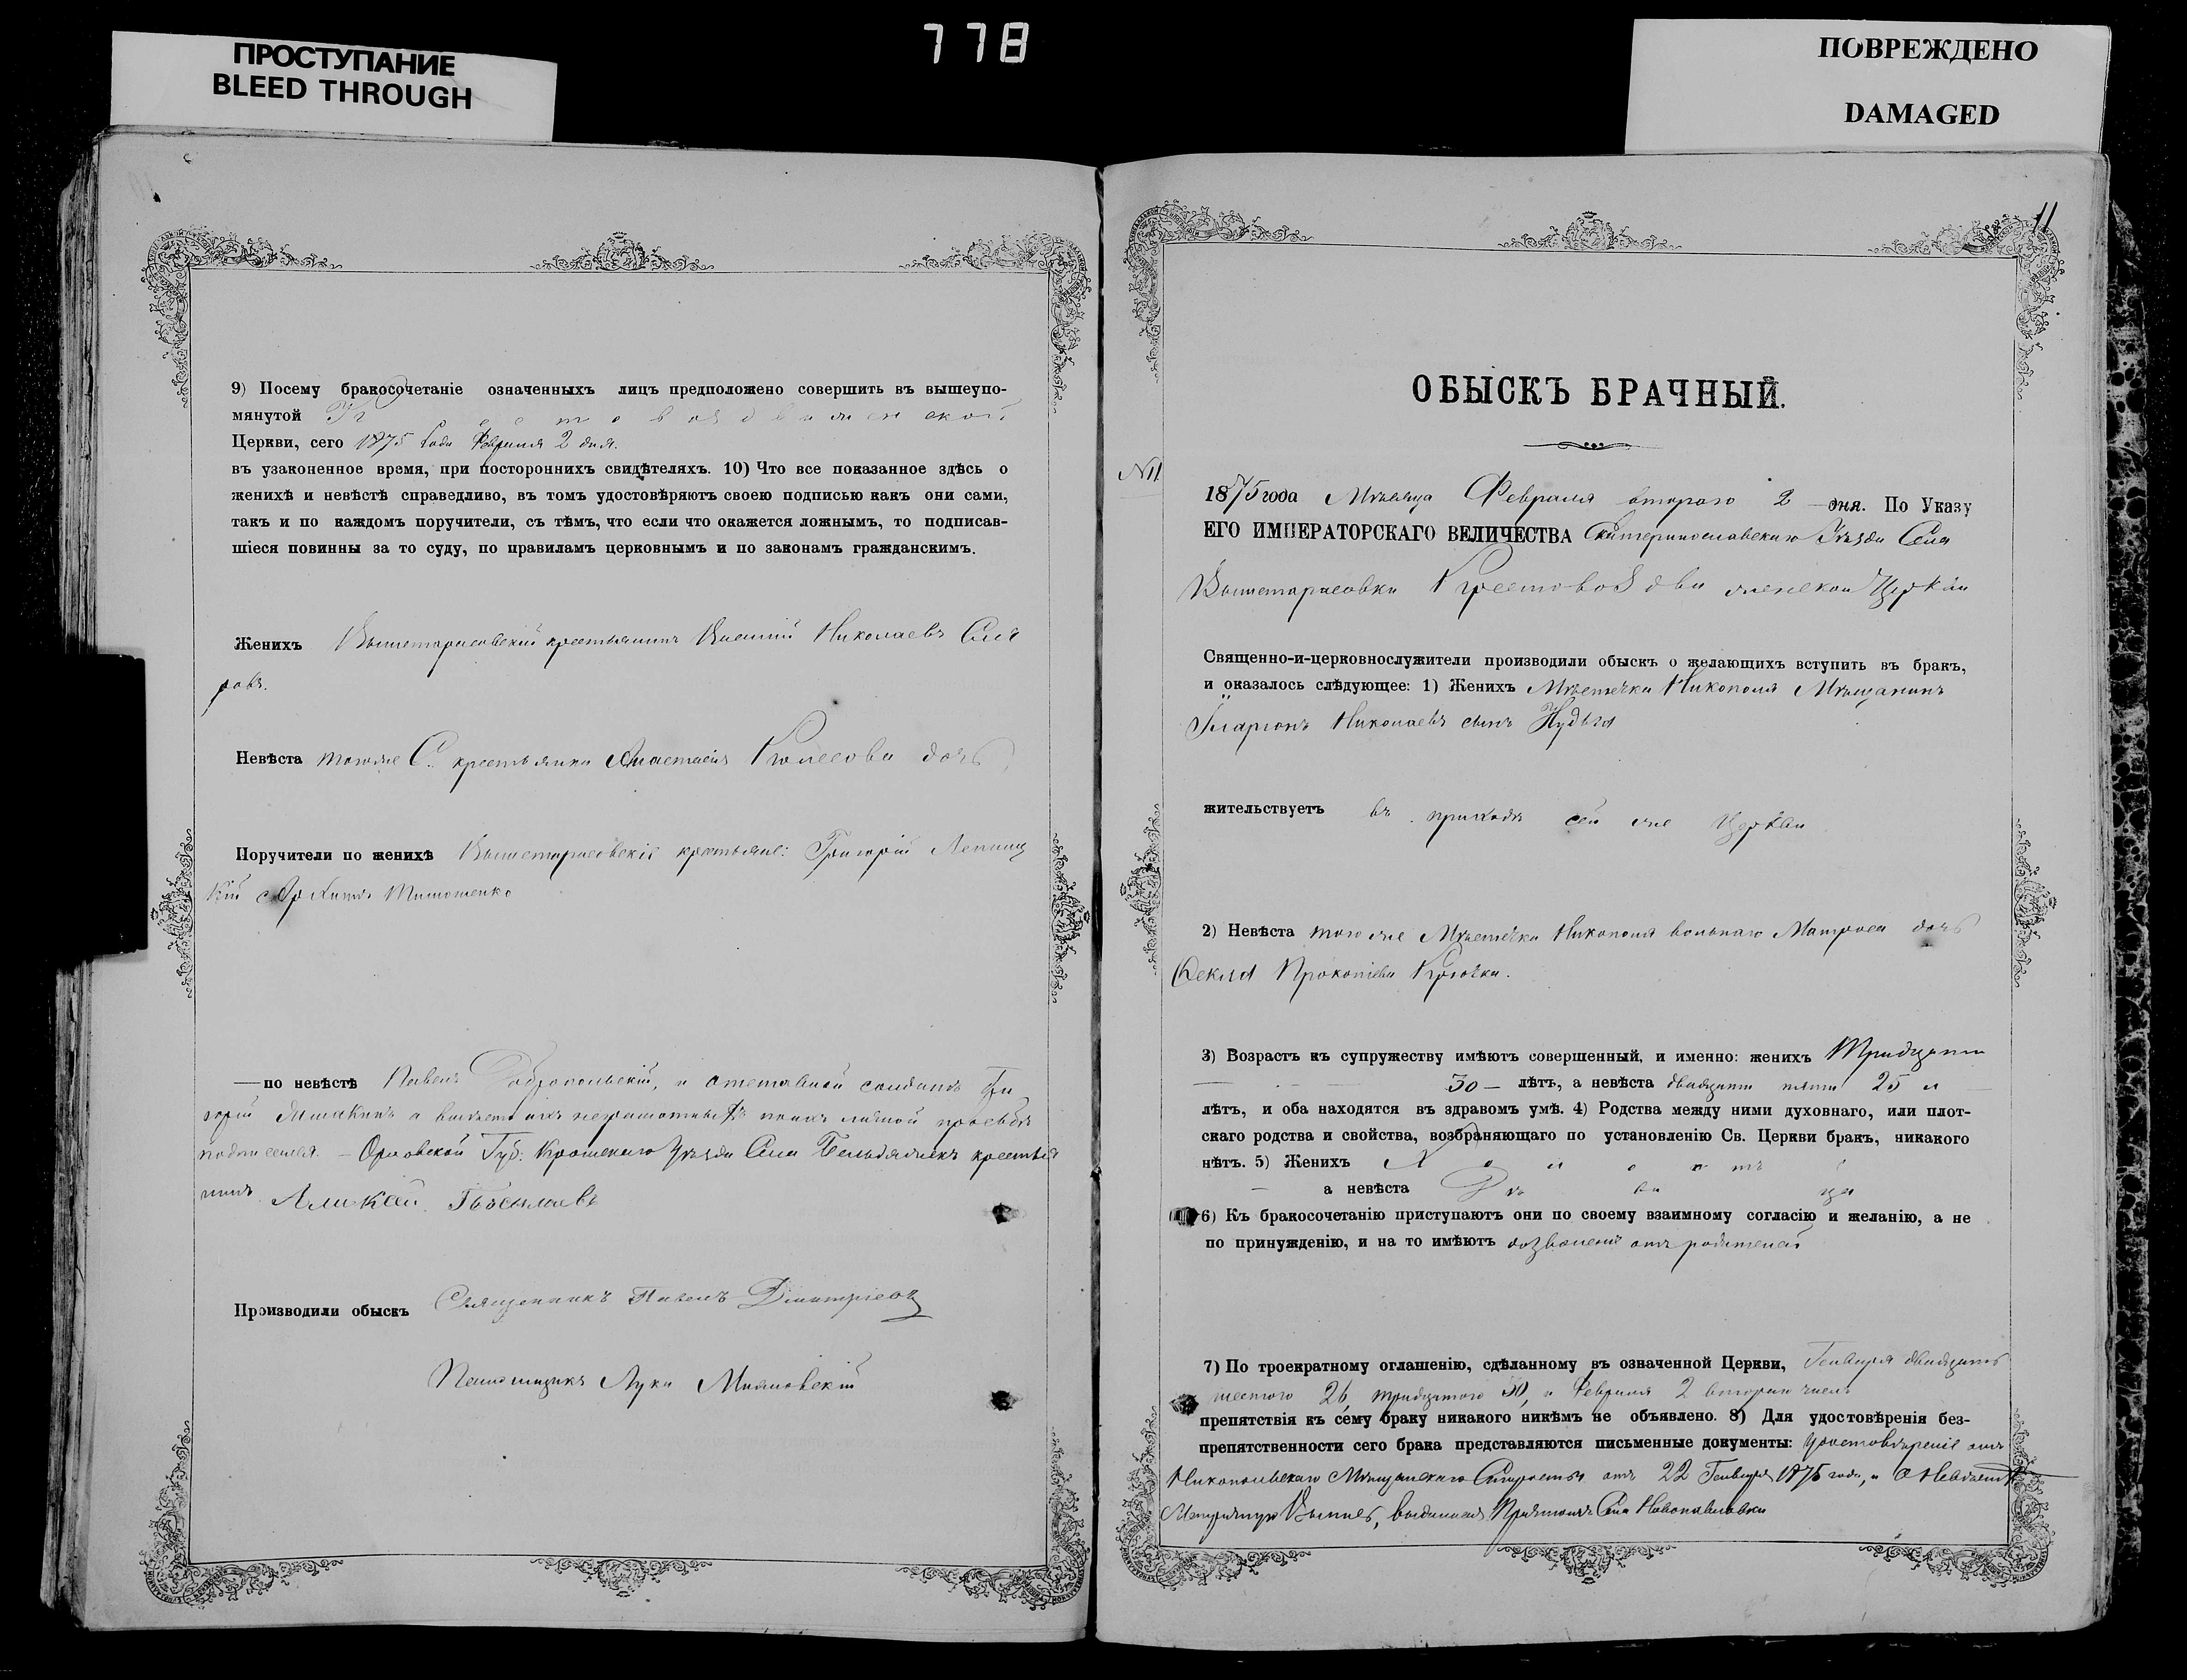 778
ПРОСТУПАНИЕ
BLEED THROUGH
ПОВРЕЖДЕНО
DAMAGED
9) Посему бракосочетаніе означенныхъ лицъ предположено совершить въ вышеупо-
мянутой Крестовоздвиженской
Церкви, сего 1875 Года Февраля 2 дня.
въ узаконенное время, при постороннихъ свидѣтеляхъ. 10) Что все показанное здѣсь о
женихѣ и невѣстѣ справедливо, въ томъ удостовѣряютъ своею подписью какъ они сами,
такъ и по каждомъ поручители, съ тѣмъ, что если что окажется ложнымъ, то подписав-
шіеся повинны за то суду, по правиламъ церковнымъ и по законамъ гражданскимъ.
Женихъ Вышетарасовскій крестьянинъ Николаевъ
Невѣста тогоже С. крестьянка Анастасія дочь
Поручители по женихѣ Вышетарасовскіе крестьяне: Григорій
кій Тимошенко
—по невѣстѣ Павелъ Добропольскій, и отставной солдатъ Гри
горій а вмѣсто ихъ неграмотныхъ по ихъ личной просьбѣ
подписался – Орловской Губ: Кромскаго Уѣзда Села крестья
нинъ
Производили обыскъ Священникъ Павелъ Дмитріевъ
Лука
11
ОБЫСКЪ БРАЧНЫЙ.
№11
1875 года Мѣсяца Февраля второго 2 дня. По Указу
ЕГО ИМПЕРАТОРСКАГО ВЕЛИЧЕСТВА Екатеринославскаго Уѣзда Села
Вышетарасовки Крестовоздвиженской Церкви
Священно-и-церковнослужители производили обыскъ о желающихъ вступить въ бракъ,
и оказалось слѣдующее: 1) Женихъ Мѣстечка Никополя Мѣщанинъ
Иларіонъ Николаевъ сынъ Нудьга
жительствуетъ въ приходѣ сей же Церкви
2) Невѣста того же Мѣстечка Никополя вольнаго Матроса дочь
Ѳекла Прокопіева Крючка.
3) Возрастъ къ супружеству имѣютъ совершенный, и именно: женихъ Тридцати
30 – лѣтъ, а невѣста двадцати пяти 25 и
лѣтъ, и оба находятся въ здравомъ умѣ. 4) Родства между ними духовнаго, или плот-
скаго родства и свойства, возбраняющаго по установленію Св. Церкви бракъ, никакого
нѣтъ. 5) Женихъ Холостъ
а невѣста Дѣвица
6) Къ бракосочетанію приступаютъ они по своему взаимному согласію и желанію, а не
по принужденію, и на то имѣютъ дозволеніе отъ родителей
7) По троекратному оглашенію, сдѣланному въ означенной Церкви, Генваря двадцать
шестого 26, тридцатого 30, и Февраля 2 второго числъ
препятствія къ сему браку никакого никѣмъ не объявлено. 8) Для удостовѣренія без-
препятственности сего брака представляются письменные документы: Удостовѣреніе отъ
Никопольскаго Мѣщанскаго Старосты отъ 22 Генваря 1875 года, и о Невѣстѣ
Метрическую Выпись, выданная Причтомъ Села Новопавловки